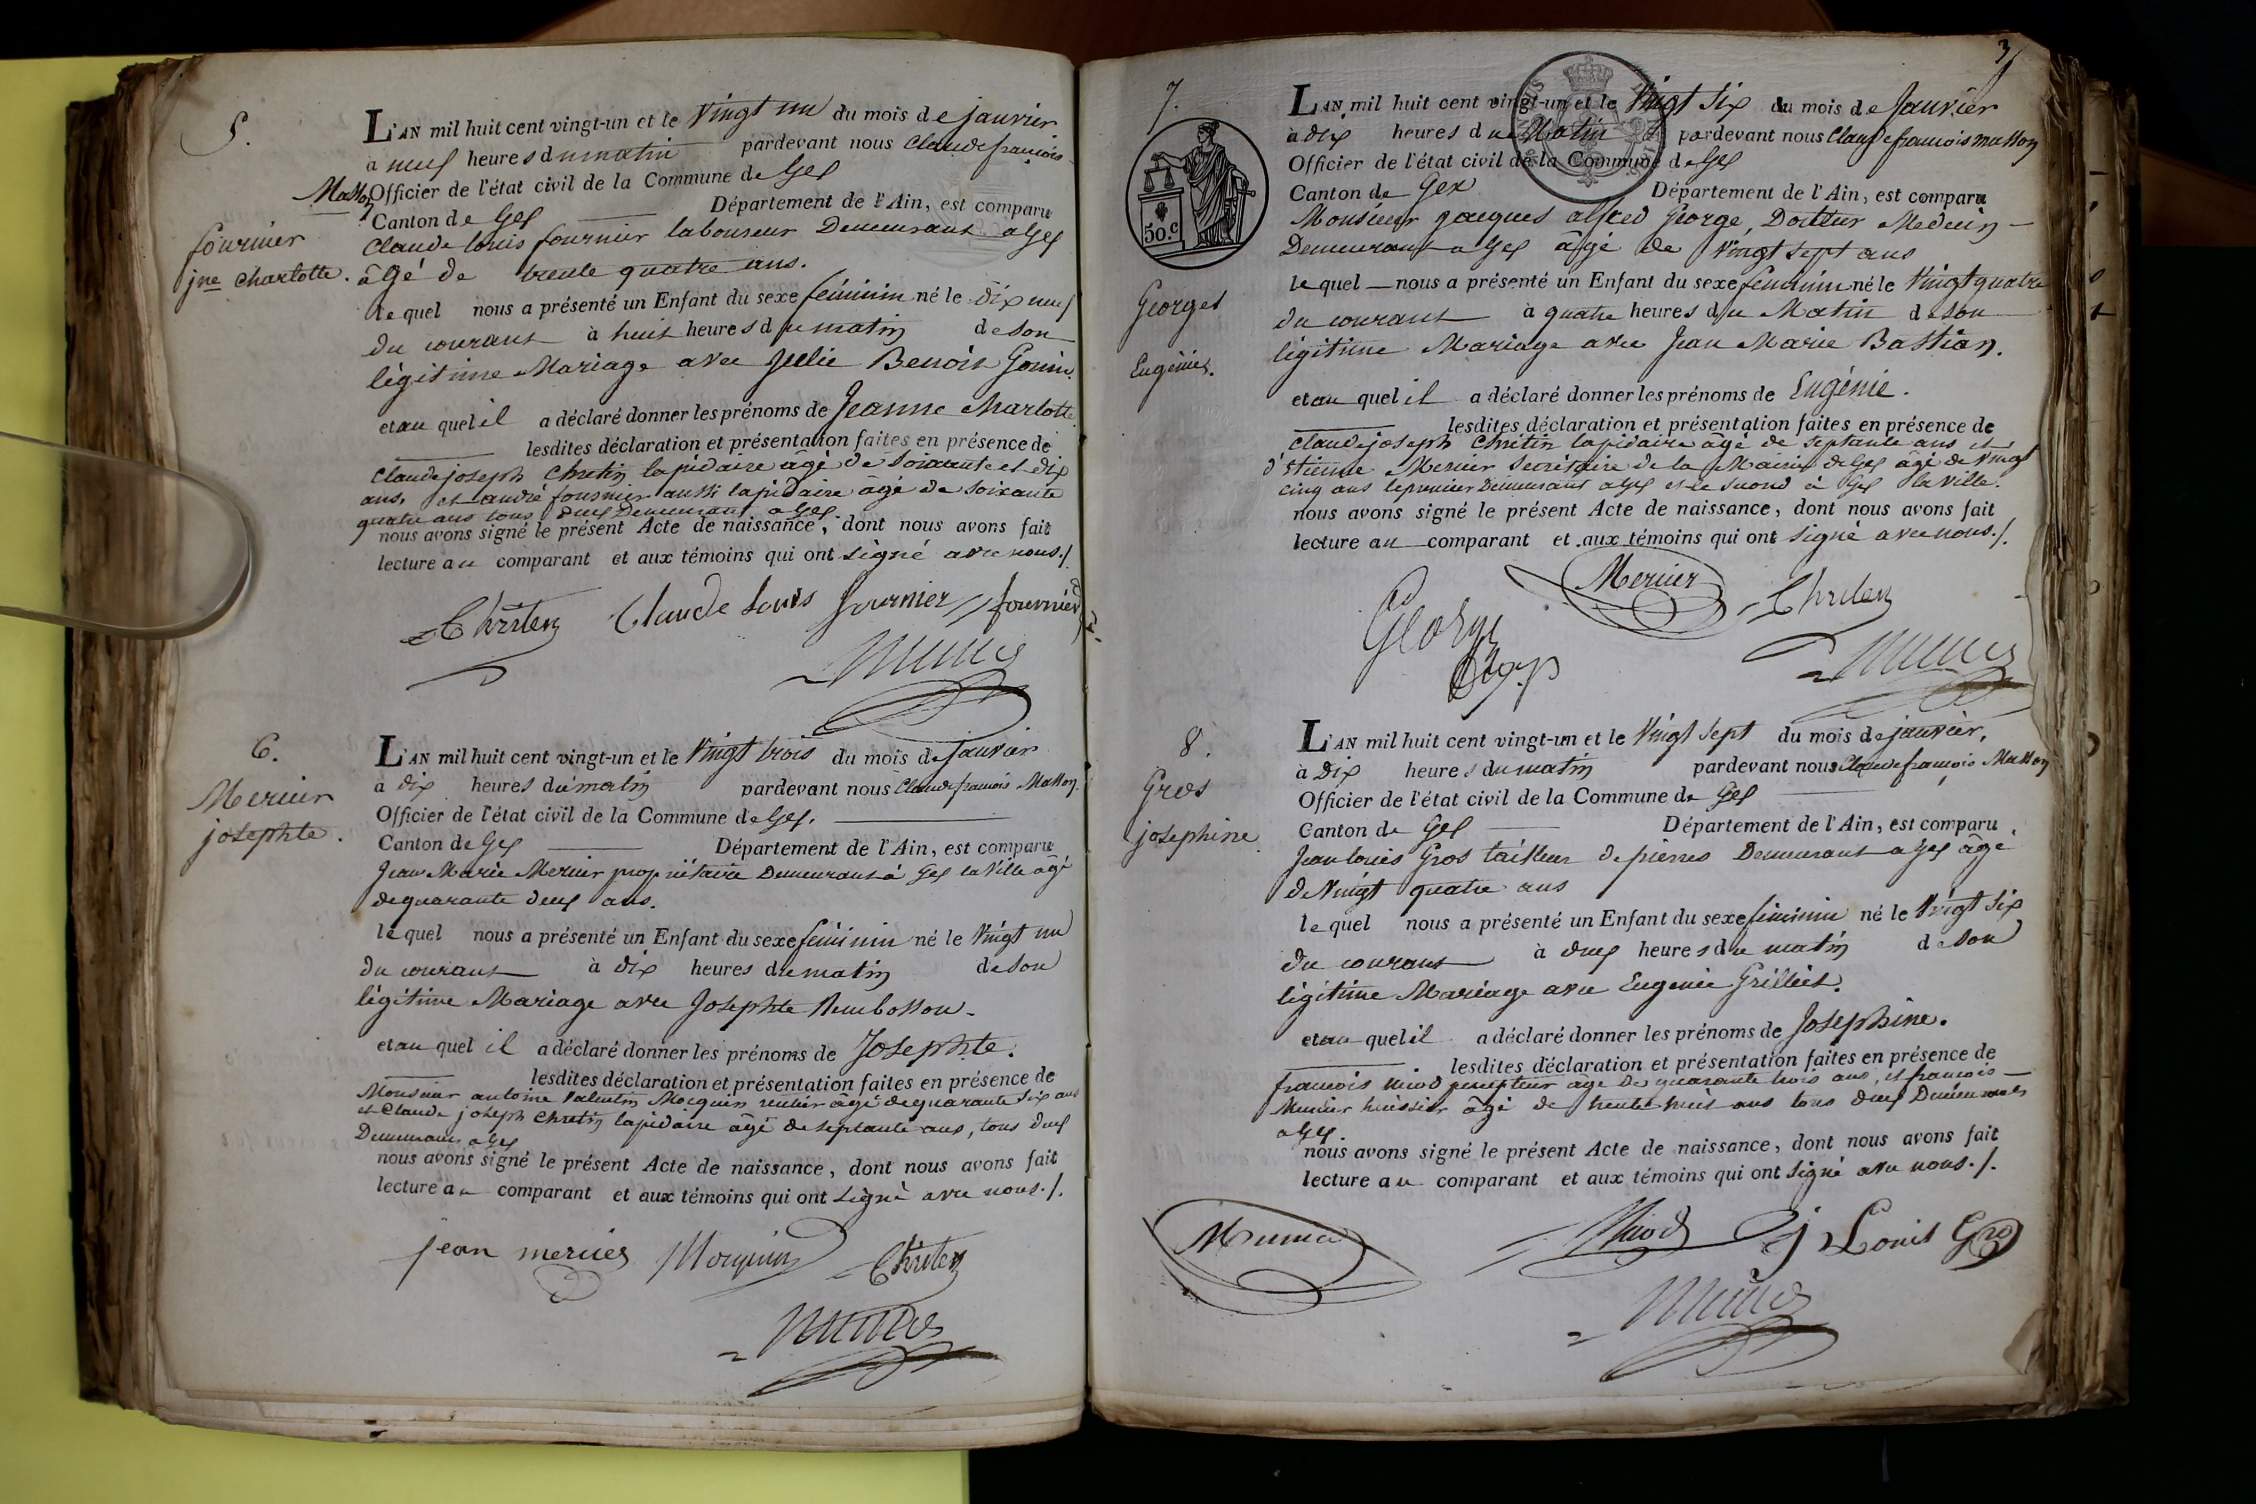 5.
L'AN mil huit cent vingt-un et le Vingt un du mois de janvier
à neuf heures du matin pardevant nous Claude françois
Masson Officier de l'état civil de la Commune de Gex
Canton de Gex Département de l'Ain, est comparu
fournier
jne charlotte.
Claude louis fournier laboureur Demeurant a Gex
âgé de trente quatre ans.
le quel nous a présenté un Enfant du sexe féminin né le dix neuf
du courant à huit heures du matin de son
légitime Mariage avec Julie Benoit Gonin.
et au quel il a déclaré donner les prénoms de Jeanne Charlotte
lesdites déclaration et présentation faites en présence de
Claude joseph Chretin lapidaire âgé de soixante et dix
ans, et andré fournier aussi lapidaire âgé de soixante
quatre ans tous deux Demeurant a Gex
nous avons signé le présent Acte de naissance, dont nous avons fait
lecture au comparant et aux témoins qui ont signé avec nous./.
Chriten Claude Louis fournier fournier
6.
Mercier
josephte.
L'AN mil huit cent vingt-un et le Vingt trois du mois de janvier
à dix heures du matin pardevant nous Claude françois Masson
Officier de l'état civil de la Commune de Gex.
Canton de Gex Département de l'Ain, est comparu
Jean Marie Mercier propriétaire Demeurant à Gex la Ville âgé
de quarante deux ans.
le quel nous a présenté un Enfant du sexe féminin né le Vingt un
du courant à dix heures du matin de son
légitime Mariage avec Josephte
et au quel il a déclaré donner les prénoms de Josephte.
lesdites déclaration et présentation faites en présence de
Monsieur antoine Valentin Mocquin rentier âgé de quarante six ans
et Claude joseph Chretin lapidaire âgé de septante ans, tous deux
Demeurant a Gex
nous avons signé le présent Acte de naissance, dont nous avons fait
lecture au comparant et aux témoins qui ont signé avec nous./.
jean mercier Moquin Chriten
3
7.
50.c
L'AN mil huit cent vingt-un et le Vingt six du mois de Janvier
à dix heures du Matin pardevant nous Claude francois masson
Officier de l'état civil de la Commune de Gex
Canton de Gex Département de l'Ain, est comparu
Monsieur jacques alfred George, Docteur Medecin
Demeurant a Gex âgé de vingt sept ans
le quel nous a présenté un Enfant du sexe féminin né le Vingt quatre
Georges
Eugénie.
du courant à quatre heures du Matin de son
légitime Mariage avec Jean Marie Bastian.
et au quel il a déclaré donner les prénoms de Eugénie.
lesdites déclaration et présentation faites en présence de
Claude joseph Chrétin lapidaire âgé de septante ans et
d'étienne Mercier Secrétaire de la Mairie de Gex âgé de vingt
cinq ans le premier Demeurant a Gex et le second à Gex la ville.
nous avons signé le présent Acte de naissance, dont nous avons fait
lecture au comparant et aux témoins qui ont signé avec nous./.
George Mercier Chriten
8.
Gros
josephine
L'AN mil huit cent vingt-un et le Vingt sept du mois de janvier,
à Dix heures du matin pardevant nous Claude françois Masson
Officier de l'état civil de la Commune de Gex
Canton de Gex Département de l'Ain, est comparu
Jean louis Gros tailleur de pierres Demeurant a Gex âgé
de Vingt quatre ans
le quel nous a présenté un Enfant du sexe féminin né le Vingt six
du courant à deux heures du matin de son
légitime Mariage avec Eugenie Grilliet.
et au quel il a déclaré donner les prénoms de Josephine.
lesdites déclaration et présentation faites en présence de
francois percepteur âgé de quarante trois ans, et francois
Mercier huissier âgé de trente huit ans tous deux Demeurants
a Gex.
nous avons signé le présent Acte de naissance, dont nous avons fait
lecture au comparant et aux témoins qui ont signé avec nous./.
j Louis Gro